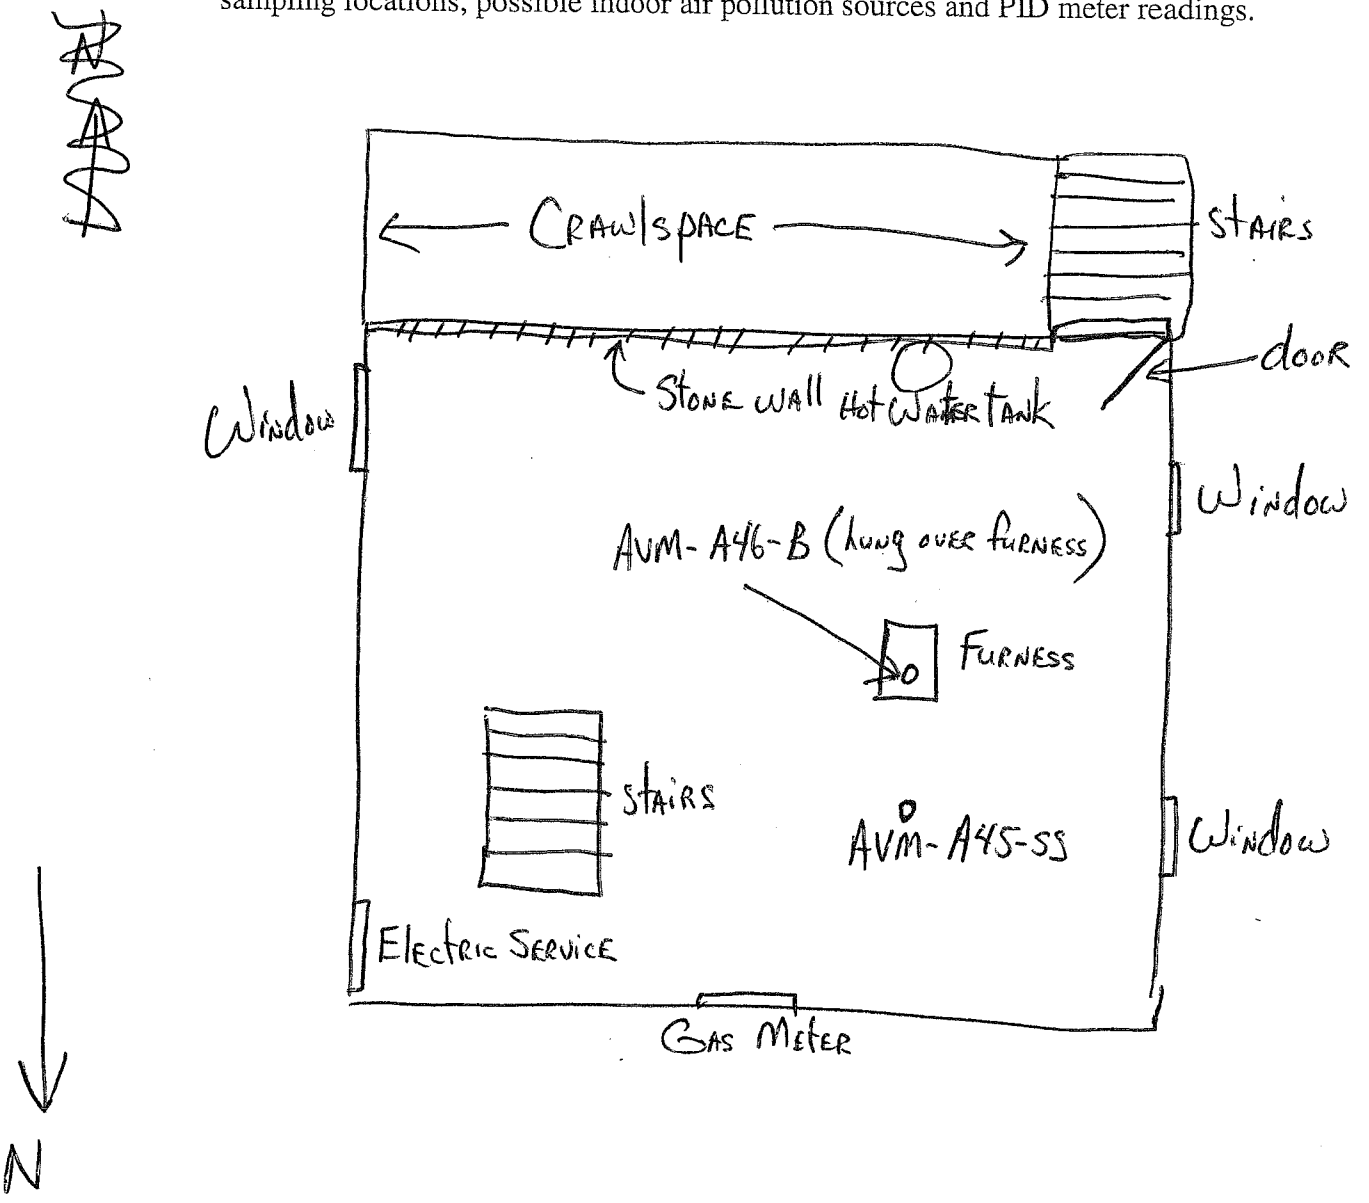 sampling locations, possible indoor air pollution sources and PID meter readings.
N
CRAWlspACE
StAIRS
dooR
StoNE wAll
Hot WAtER tANK
Window
WiNdow
AVM-A46-B (hung ovER fuRNESS)
FURNESS
StAIRS
AVM-A45-SS
WiNdow
ElEctRic SERvicE
GAS MEtER
N